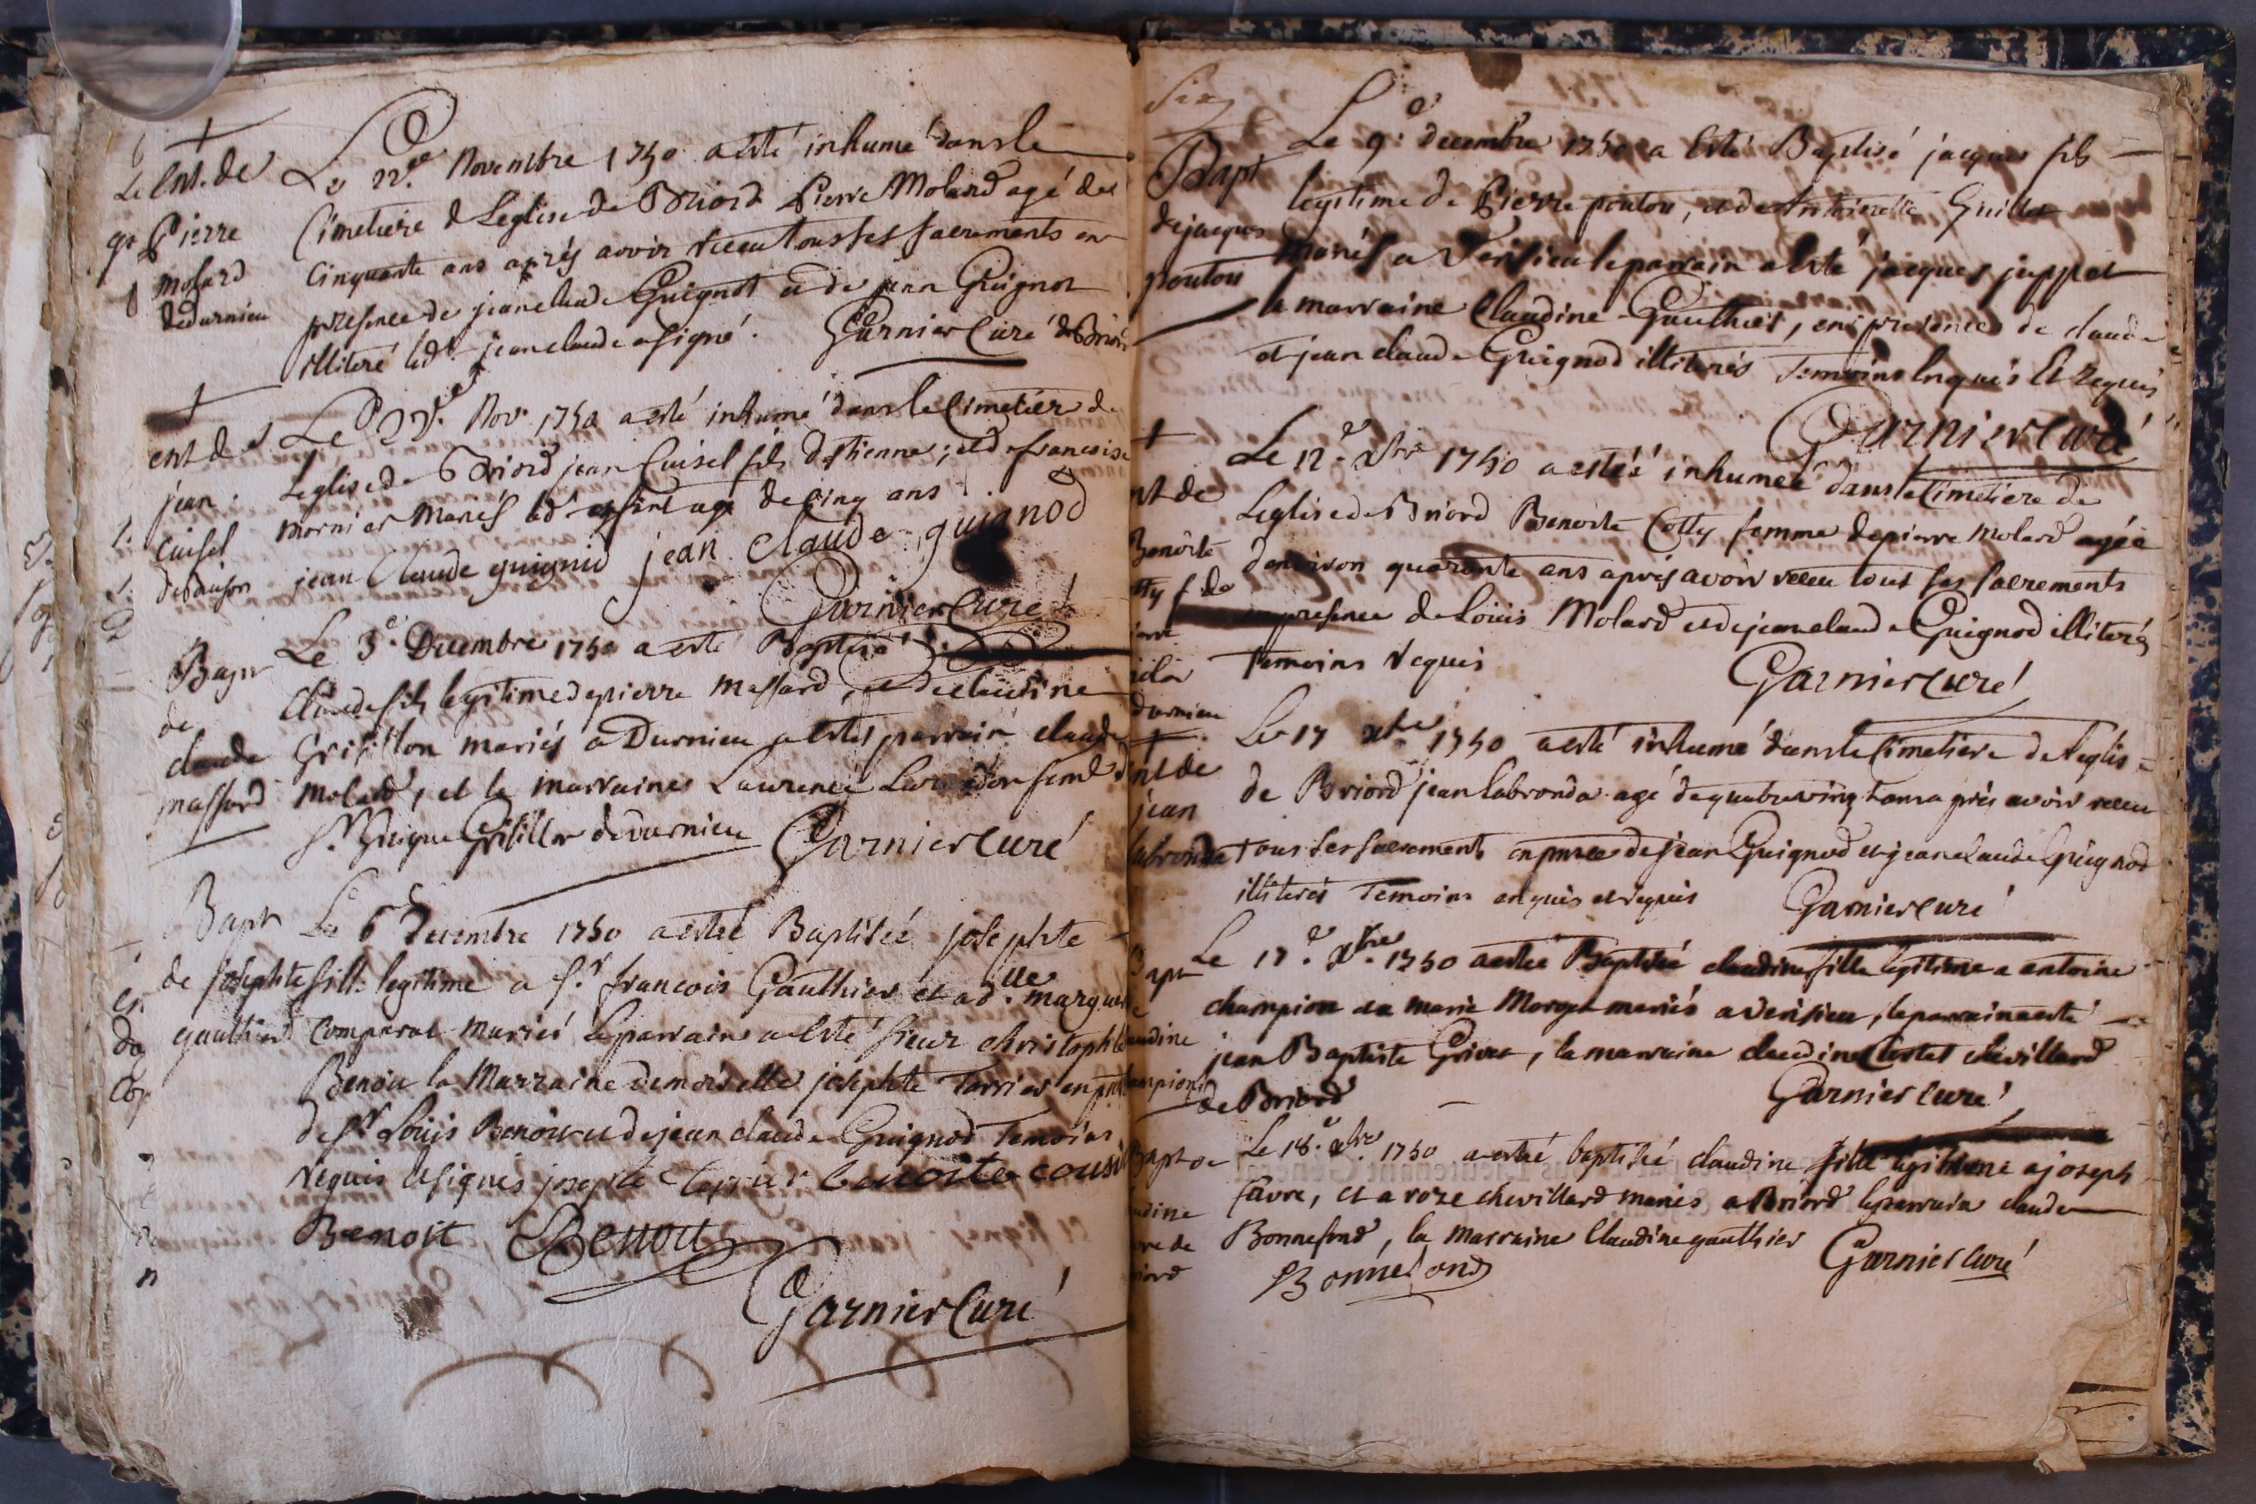 Ent. de
Pierre
molard
de durnieu
Le 22e Novembre 1750 a esté inhumé dans le
Cimetiere de Leglise de Briord Pierre Molard agé de
Cinquante ans aprés avoir receu tous ses sacrements en
presence de jean claude Guignot et de jean Guignot
illiteré led. jean claude a signé. Garnier Curé de Briord
ent de
jean
cuisel
Le Nov. 1750 a esté inhumé dans le Cimetiere de
Leglise de Briord jean Cuisel fils destienne, et de francoise
mornier Mariés led. enfant agé de cinq ans
jean Claude guignid jean claude guignod
Garnier Curé
Bapt
de
claude
massard
Le 3e Decembre 1750 a esté Baptisé
Claude fils legitime de pierre massard, et de claudine
Grisillon mariés a Durnieu a esté parrain claude
Molard, et la marraine Laurence
Sr. Guigue Grisillon de durnieu Garnier curé
Bapt
de josephte
gauthier
Le 6 Decembre 1750 a esté Baptiséé josephte
fille legitime a Sr. francois Gauthier et a dlle. margueri
comparat mariés le parrain a esté sieur christophle
Benoit la Marraine demoiselle josephte Terrier en
de Sr Louis Benoit et de jean claude Guignod Temoins
requis et signés josephte benoite
Benoit Benoit
Garnier Curé
Bapt
de jacques
poutou
Le 9e decembre 1750 a esté Baptisé jacques fils
legitime de Pierre poutou, et de Antoinette Guillot
Mariés a Verisieu le parrain a esté jacques juppet
la marraine Claudine Gauthier, en presence de claude
et jean claude Guignod illiterés Temoins enquis et requis
Garnier curé
nt de
Benoite
tty f. de
durnieu
Le 12e Xbre 1750 a estéé inhuméé dans le Cimetiere de
Leglise de Briord Benoite Cotty femme de pierre Molard agée
denviron quarante ans aprés avoir receu tous ses sacrements
en presence de Louis Molard et de jean claude Guignod illiterés
temoins requis Garnier Curé
nt de
jean
labronda
Le 17 xbre 1750 a esté inhumé dans le Cimetiere de leglise
de Briord jean labronda agé de quatre vingt ans aprés avoir receu
tous ses sacrements en pnce de jean Guignod et jean claude Guignod
illiterés Temoins enquis et requis Garnier curé
Bapt
audine
ampion
Le 17e Xbre 1750 a estéé Baptiséé claudine fille legitime a antoine
champion et a marie Morget mariés a verisieu, le parrain a esté
jean Baptiste Grivet, la marraine claudine chevillard
de Briord Garnier curé
Bapt de
udine
vre de
riord
Le 18e xbre 1750 a estéé baptiséé claudine fille legitime a joseph
favre, et a roze chevillard mariés a Briord le parrain claude
Bonnefond, la marraine Claudine gauthier Garnier curé
Bonnefond